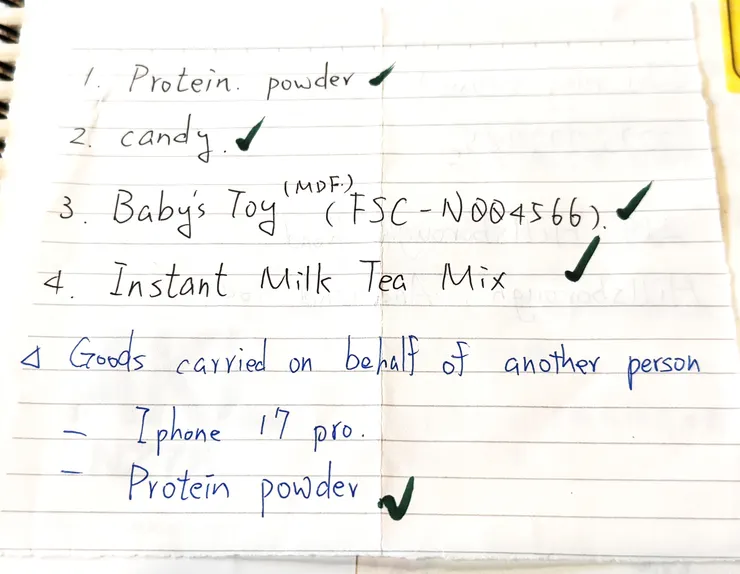 1. Protein. powder ✓
2. candy. ✓
3. Baby's Toy (MDF.) (FSC-N004566). ✓
4. Instant Milk Tea Mix ✓
△ Goods carried on behalf of another person
- Iphone 17 pro.
- Protein powder ✓